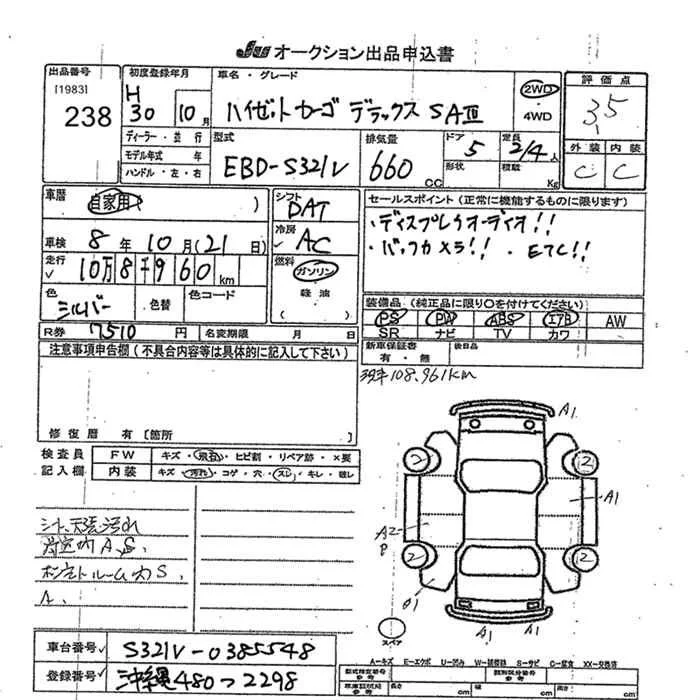 JU オークション出品申込書
出品番号 初度登録年月 車名・グレード 評価点
[1983] H
238 30 10月 ハイゼットカーゴ デラックス SAⅢ 2WD 4WD 3.5
ディーラー・並行 型式 排気量 ドア 定員 外装 内装
モデル年式 年 EBD-S321V 660cc 5 2/4人 C C
ハンドル・左・右 形状 積載 Kg
車歴 自家用 ) シフト DAT セールスポイント(正常に機能するものに限ります)
車検 8年10月(21日) 冷房 AC ・ディスプレイオーディオ!!
走行 10万8千960km 燃料 ガソリン ・バックカメラ!! ETC!!
色 シルバー 色替 色コード 軽油
( )
装備品(純正品に限り〇を付けてください)
PS PW ABS エアB AW
SR ナビ TV カワ
R券 7510円 名変期限 月 日
新車保証書 有・無 後日品
注意事項申告欄(不具合内容等は具体的に記入して下さい)
108.961km
修復歴 有[箇所 ]
検査員 FW キズ・飛石・ヒビ割・リペア跡・×要
記入欄 内装 キズ・汚れ・コゲ・穴・スレ・キレ・破レ
シート、天張汚れ
荷室内A、S、
ボンネットルーム内S、
A、
A1
2 2
A1
A2
P
2 2
A1
A1 A1
スペア
車台番号 S321V-0385548
登録番号 沖縄480つ2298
A-キズ E-エクボ U-凹み W-補修跡 S-サビ C-腐食 XX-交換済
型式指定番号 類別区分番号
参考 長さ cm 幅 cm 高さ cm